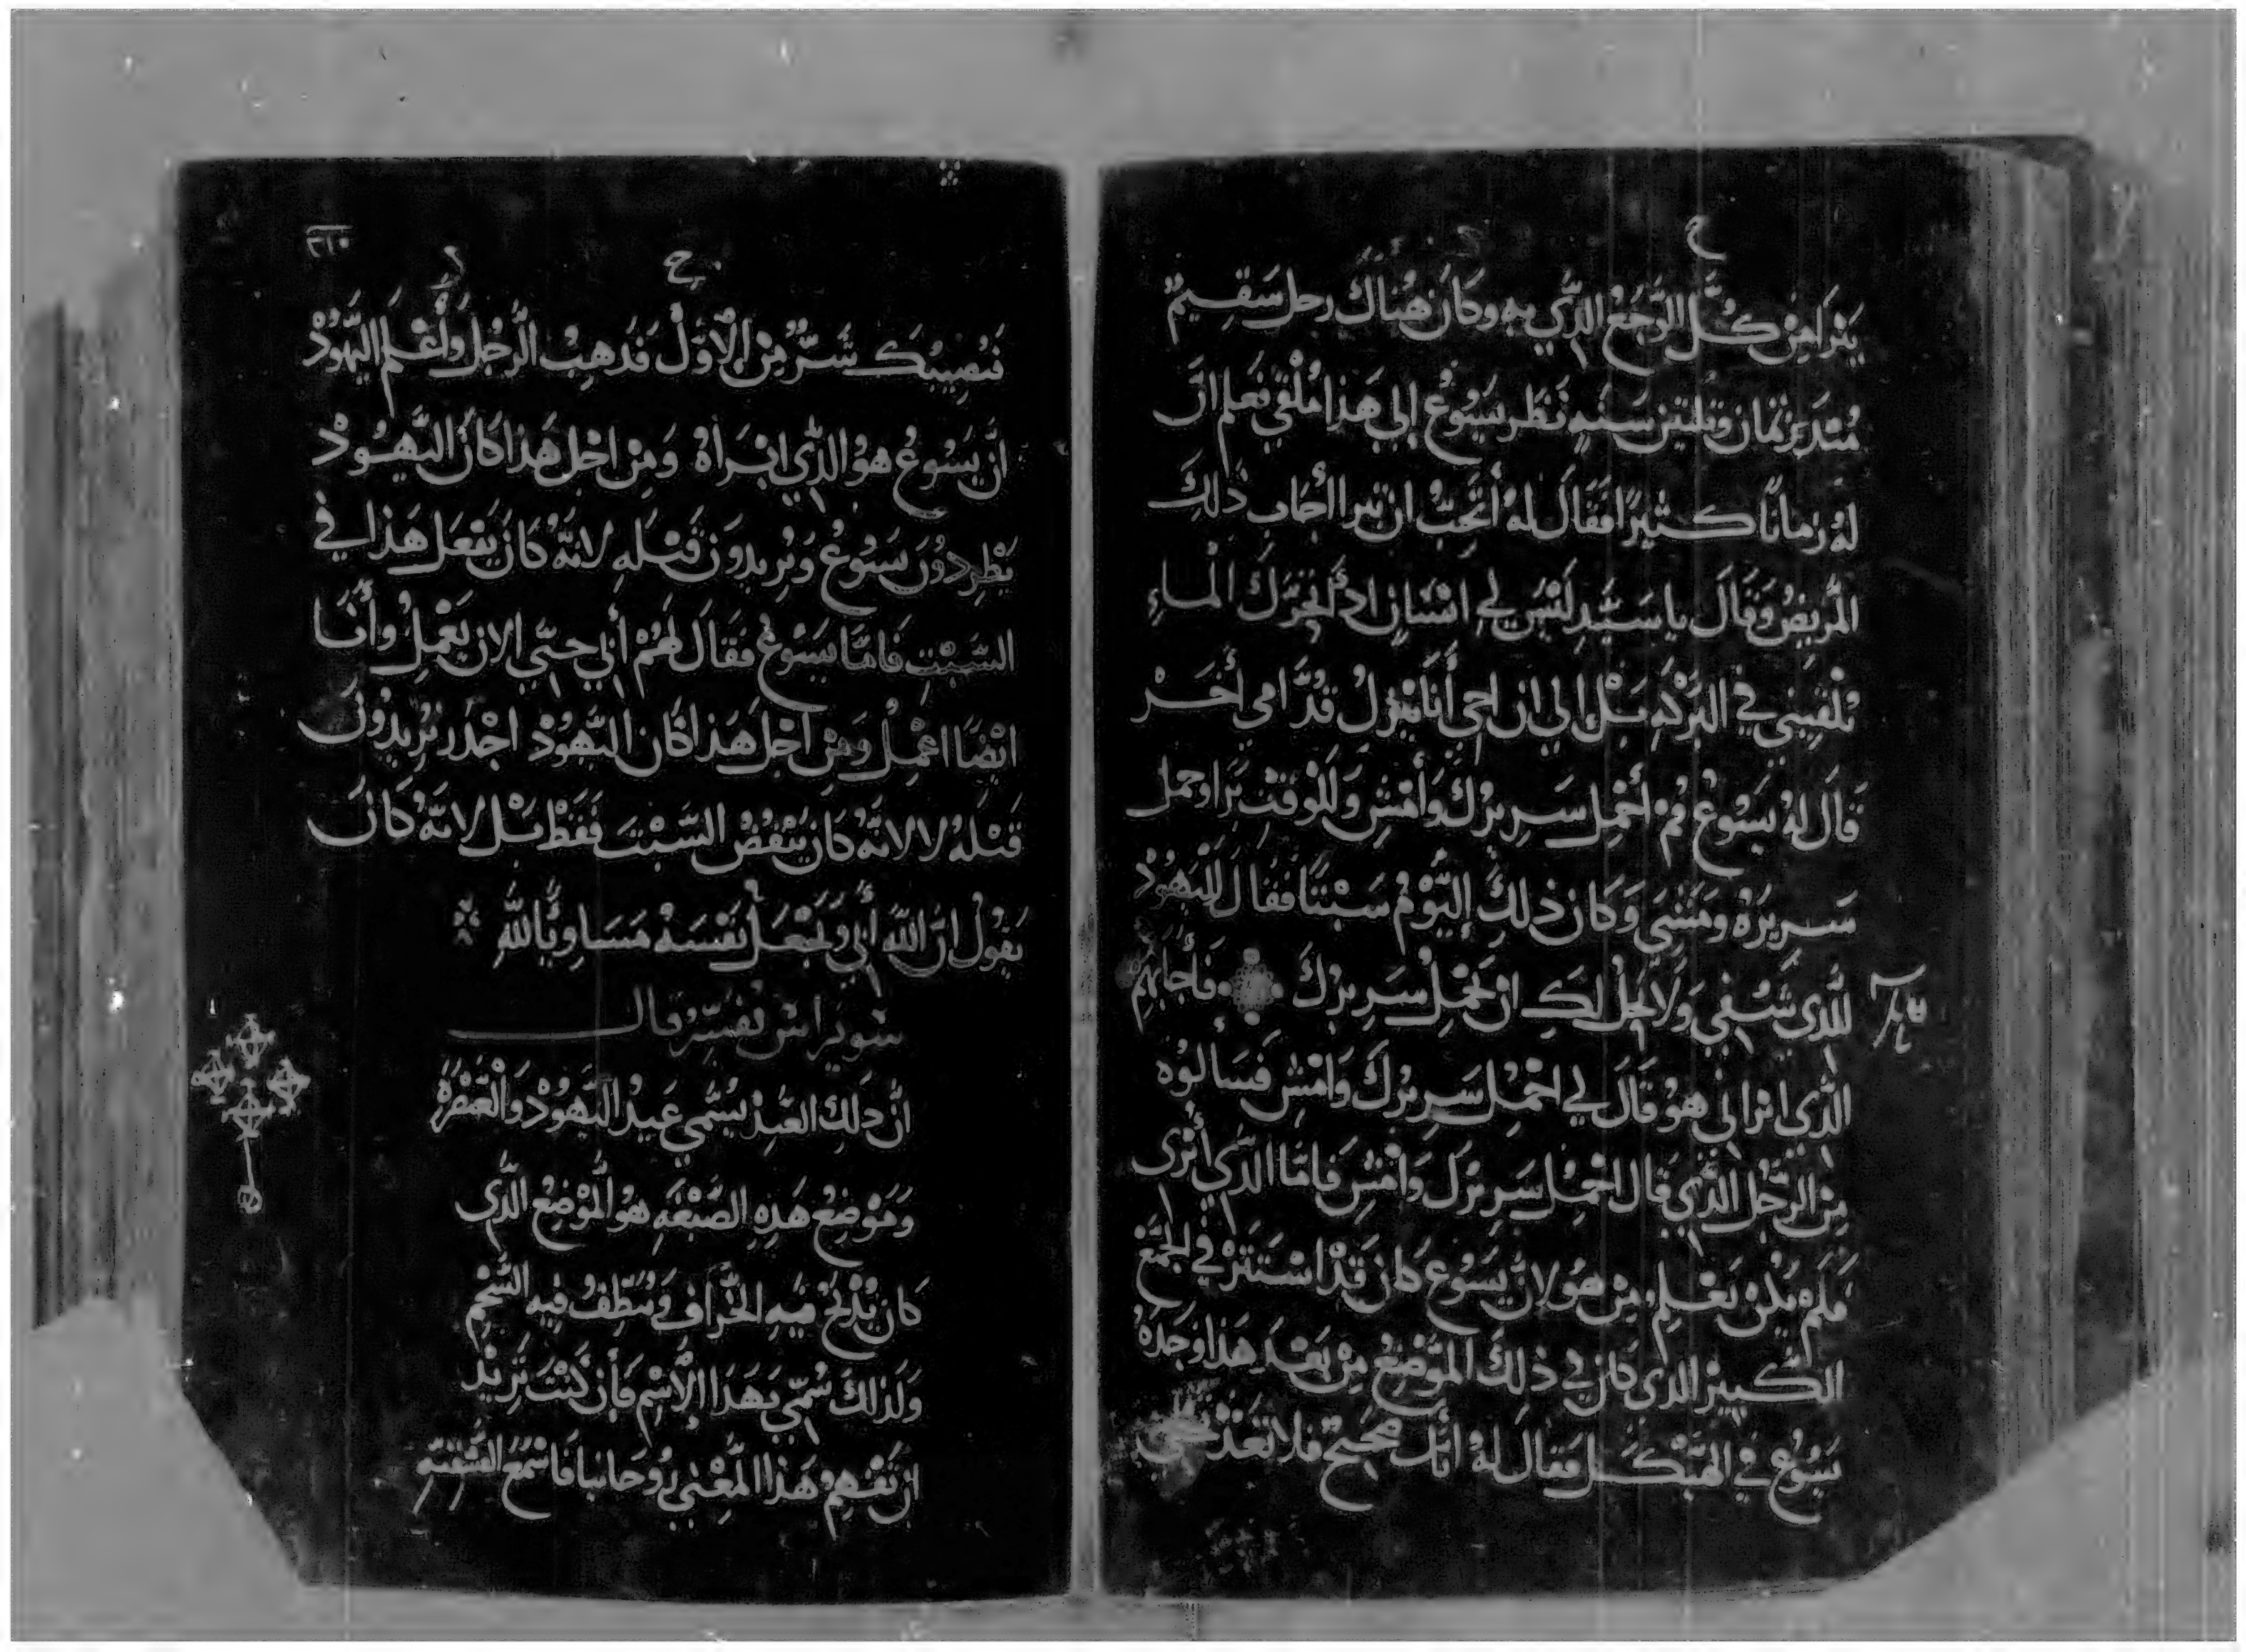 ح
يبرا من كُلّ الوَجَع الذّي به وكَان هُناك رجل سَقِيمٌ
مُنذ ثمان وثلثين سَنه نَظر يَسُوعُ إلي هَذا مُلْقي فعَلم انّ
لهُ زمانًا كثيرًا فقَال لهُ أتَحِبّ ان تبرا أجَاب ذَلِكَ
المَريضُ وَقَالَ يا سَيّد لَيْسَ لي انسَان اذا تحَرّك الْماء
يُلْقِيني في البَركَه بَلْ إلي ان اجي أنَا يَنزل قُدّامي أخَرْ
قَال لهُ يَسُوعُ قُم أحْمِل سَرِيرَكَ وَأمْشِ وَللْوقتِ بَرَا وحمل
سَرِيرَهُ ومَشَي وَكَان ذلِكَ اليَوْمُ سَبْتًا فقَال لَليَهُودْ
للذي شُفي وَلا يحلّ لكَ ان تحْمِلْ سَرِيرَكَ فأجَابَهُم
الذّي ابرَاني هوَ قَالَ لي احْمِلْ سَرِيرَكَ وَامْشِ فسَالوُه
مِن الرّجُل الذّي قَال احْمِل سَرِيرَك وَامْشِ فامّا الذّي أبْرى
فلَمْ يَكُن يَعْلم مِن هو لانّ يَسُوع كان قَدْ اسْتَتَرْ في الجَمْع
الكَبيْر الذي كان في ذلِكَ المَوْضِع مِنْ بَعْد هَذا وَجَدَهُ
يَسُوعُ في الهَيْكَل فقال لهُ أنّك صَحيحٌ فلا تعُدْ تخطي
٣١٠
ح
فَيُصِيبُك شَرٌّ مِن الأوّلْ فذَهَبَ الرّجُل وأعْلم اليَهُودْ
انّ يَسُوعُ هوُ الذّي ابْرَاهُ وَمِن اجْل هَذا كَان اليَهُودْ
يَطْرِدُون يَسُوعُ وَيُريدون قَتْلَه لانّهُ كان يَفْعَل هَذا في
السّبْتِ فامّا يَسُوعُ فقَال لهُمْ أبي حتّي الان يَعْمِلُ وأنَا
ايْضًا اعْمِلُ وَمِن اجْل هَذا كان اليَهُودْ اجْدَر يُريدُون
قَتْلهُ لا لانّهُ كان يَنْقُضُ السّبْتَ فَقَطْ بَل لانّهُ كَان
يَقُولُ انّ اللّه أبي وَيَجْعَلْ نَفْسَهُ مَسَاويًا للّهِ
سويراس يفسّر قال
انّ ذلِكَ العِيد يُسَمّي عَيدُ اليَهُودْ
وَمَوْضِعْ هَذِه الصّبْغَه هوُ المَوْضِعْ الذّي
كان يُذبَحْ فيه الخِرَاف وَيُنَظّفْ فيه الشّحْم
وَلذلك سُمّي بهَذا الاسْم فان كُنْتَ تُرِيدْ
ان تَفْهَمْ هَذا المعْني رُوحَانيا فاسْمَعْ